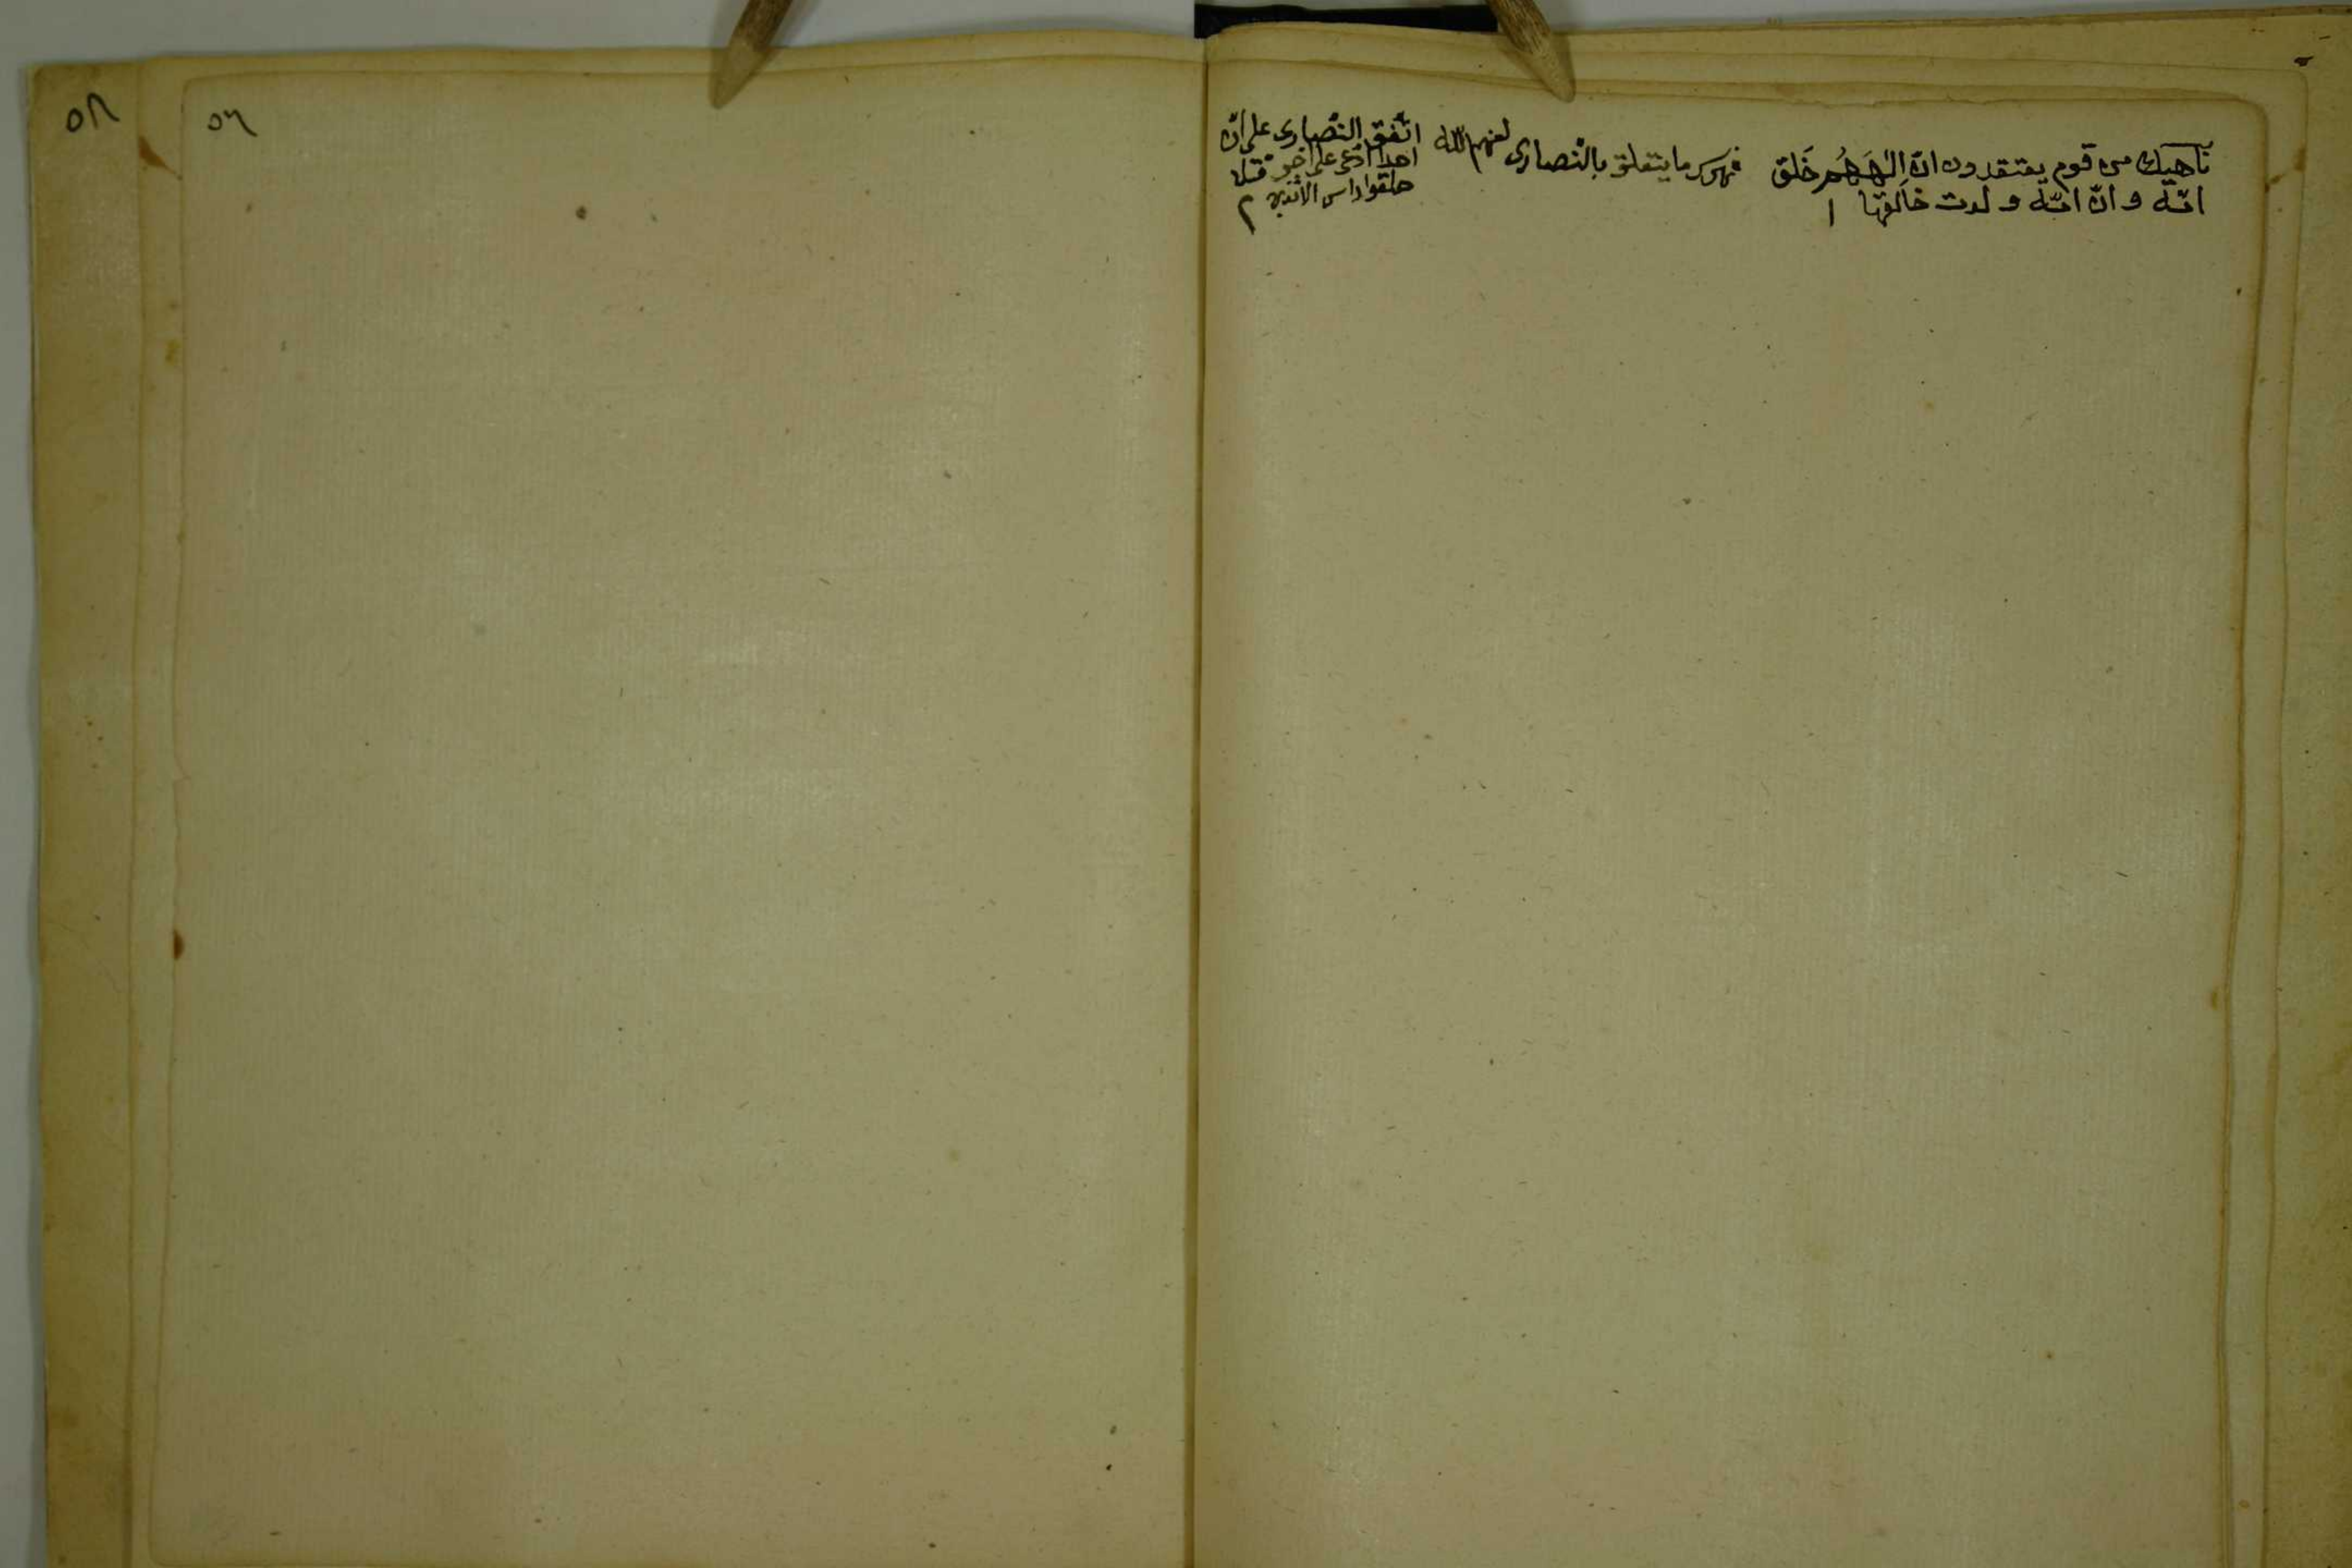 ناهيك من قوم يعتقدون انّ الٰهَهُم خَلَق
امّه و انّ امّه ولدت خالقها ١
فهرس ما يتعلق بالنّصارى لعنهم الله
اتّفق النّصارى على انّ
احدا ادّعى على آخر قتلا
حلقوا راس
٢
٥٦
٥٨